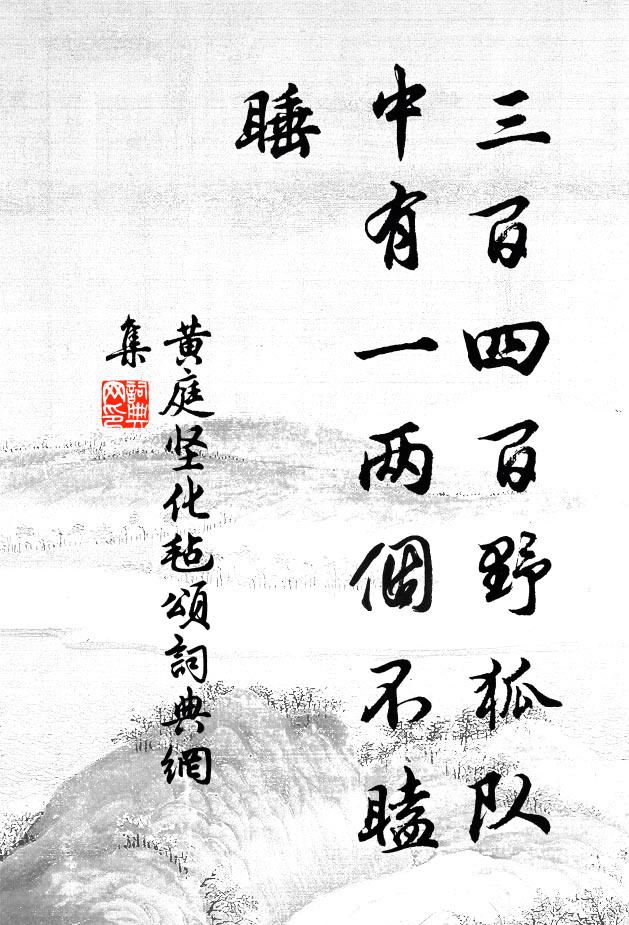 三百四百野狐队
中有一两個不瞌
睡
黄庭坚化毡頌詞典網
集
詞典
网印